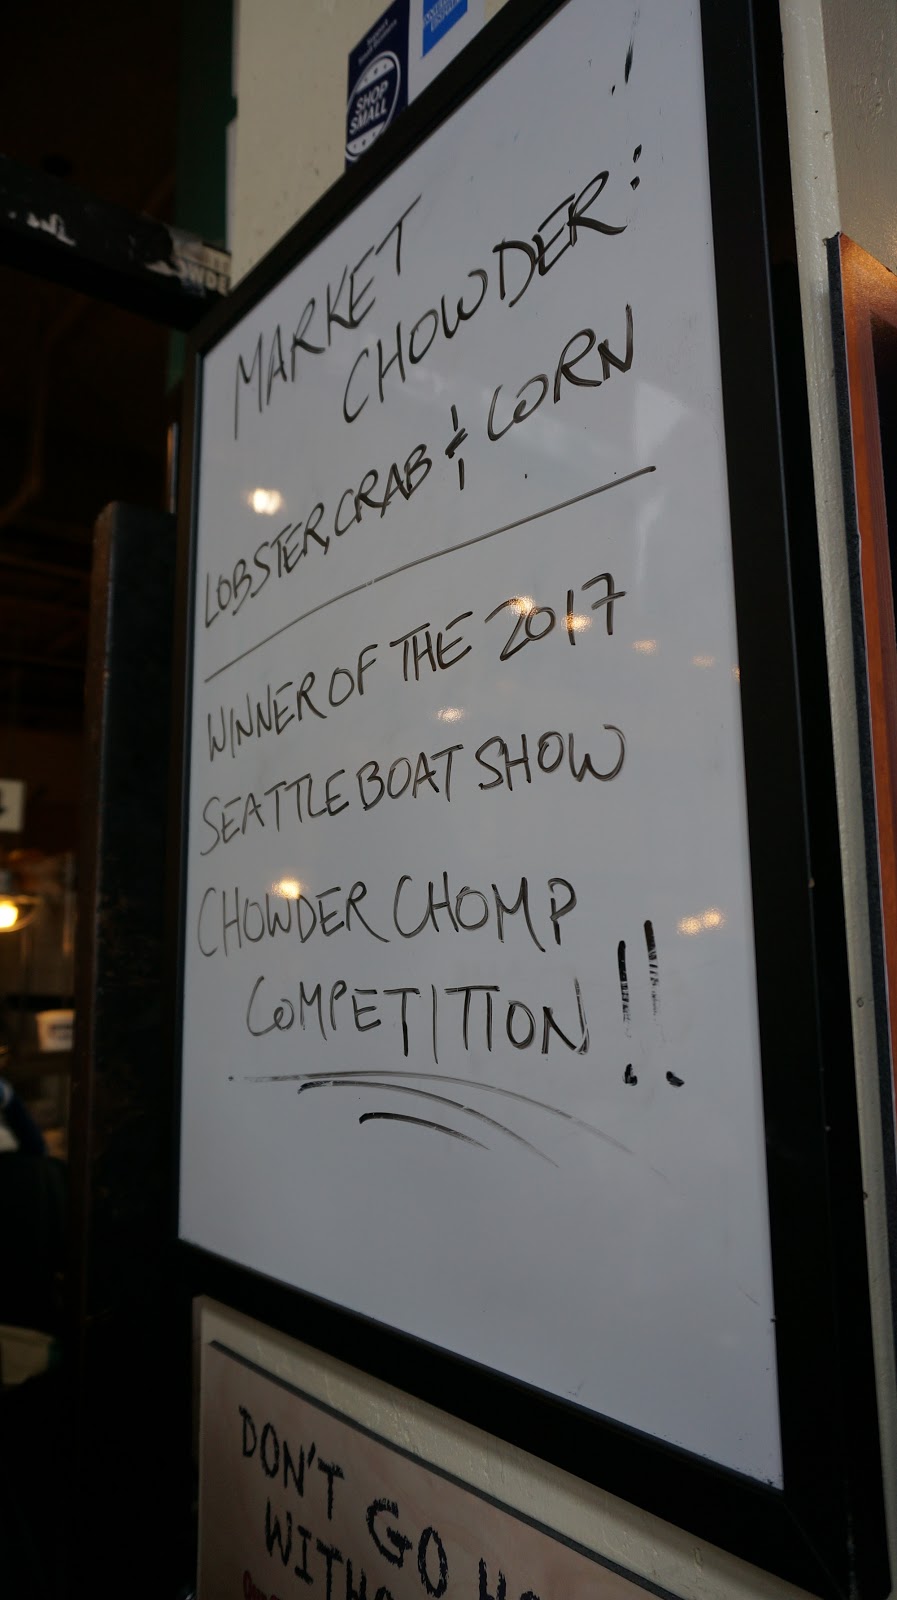 SHOP
SMALL
MARKET
CHOWDER:
LOBSTER, CRAB & CORN
WINNER OF THE 2017
SEATTLE BOAT SHOW
CHOWDER CHOMP
COMPETITION!!
DON'T
GO